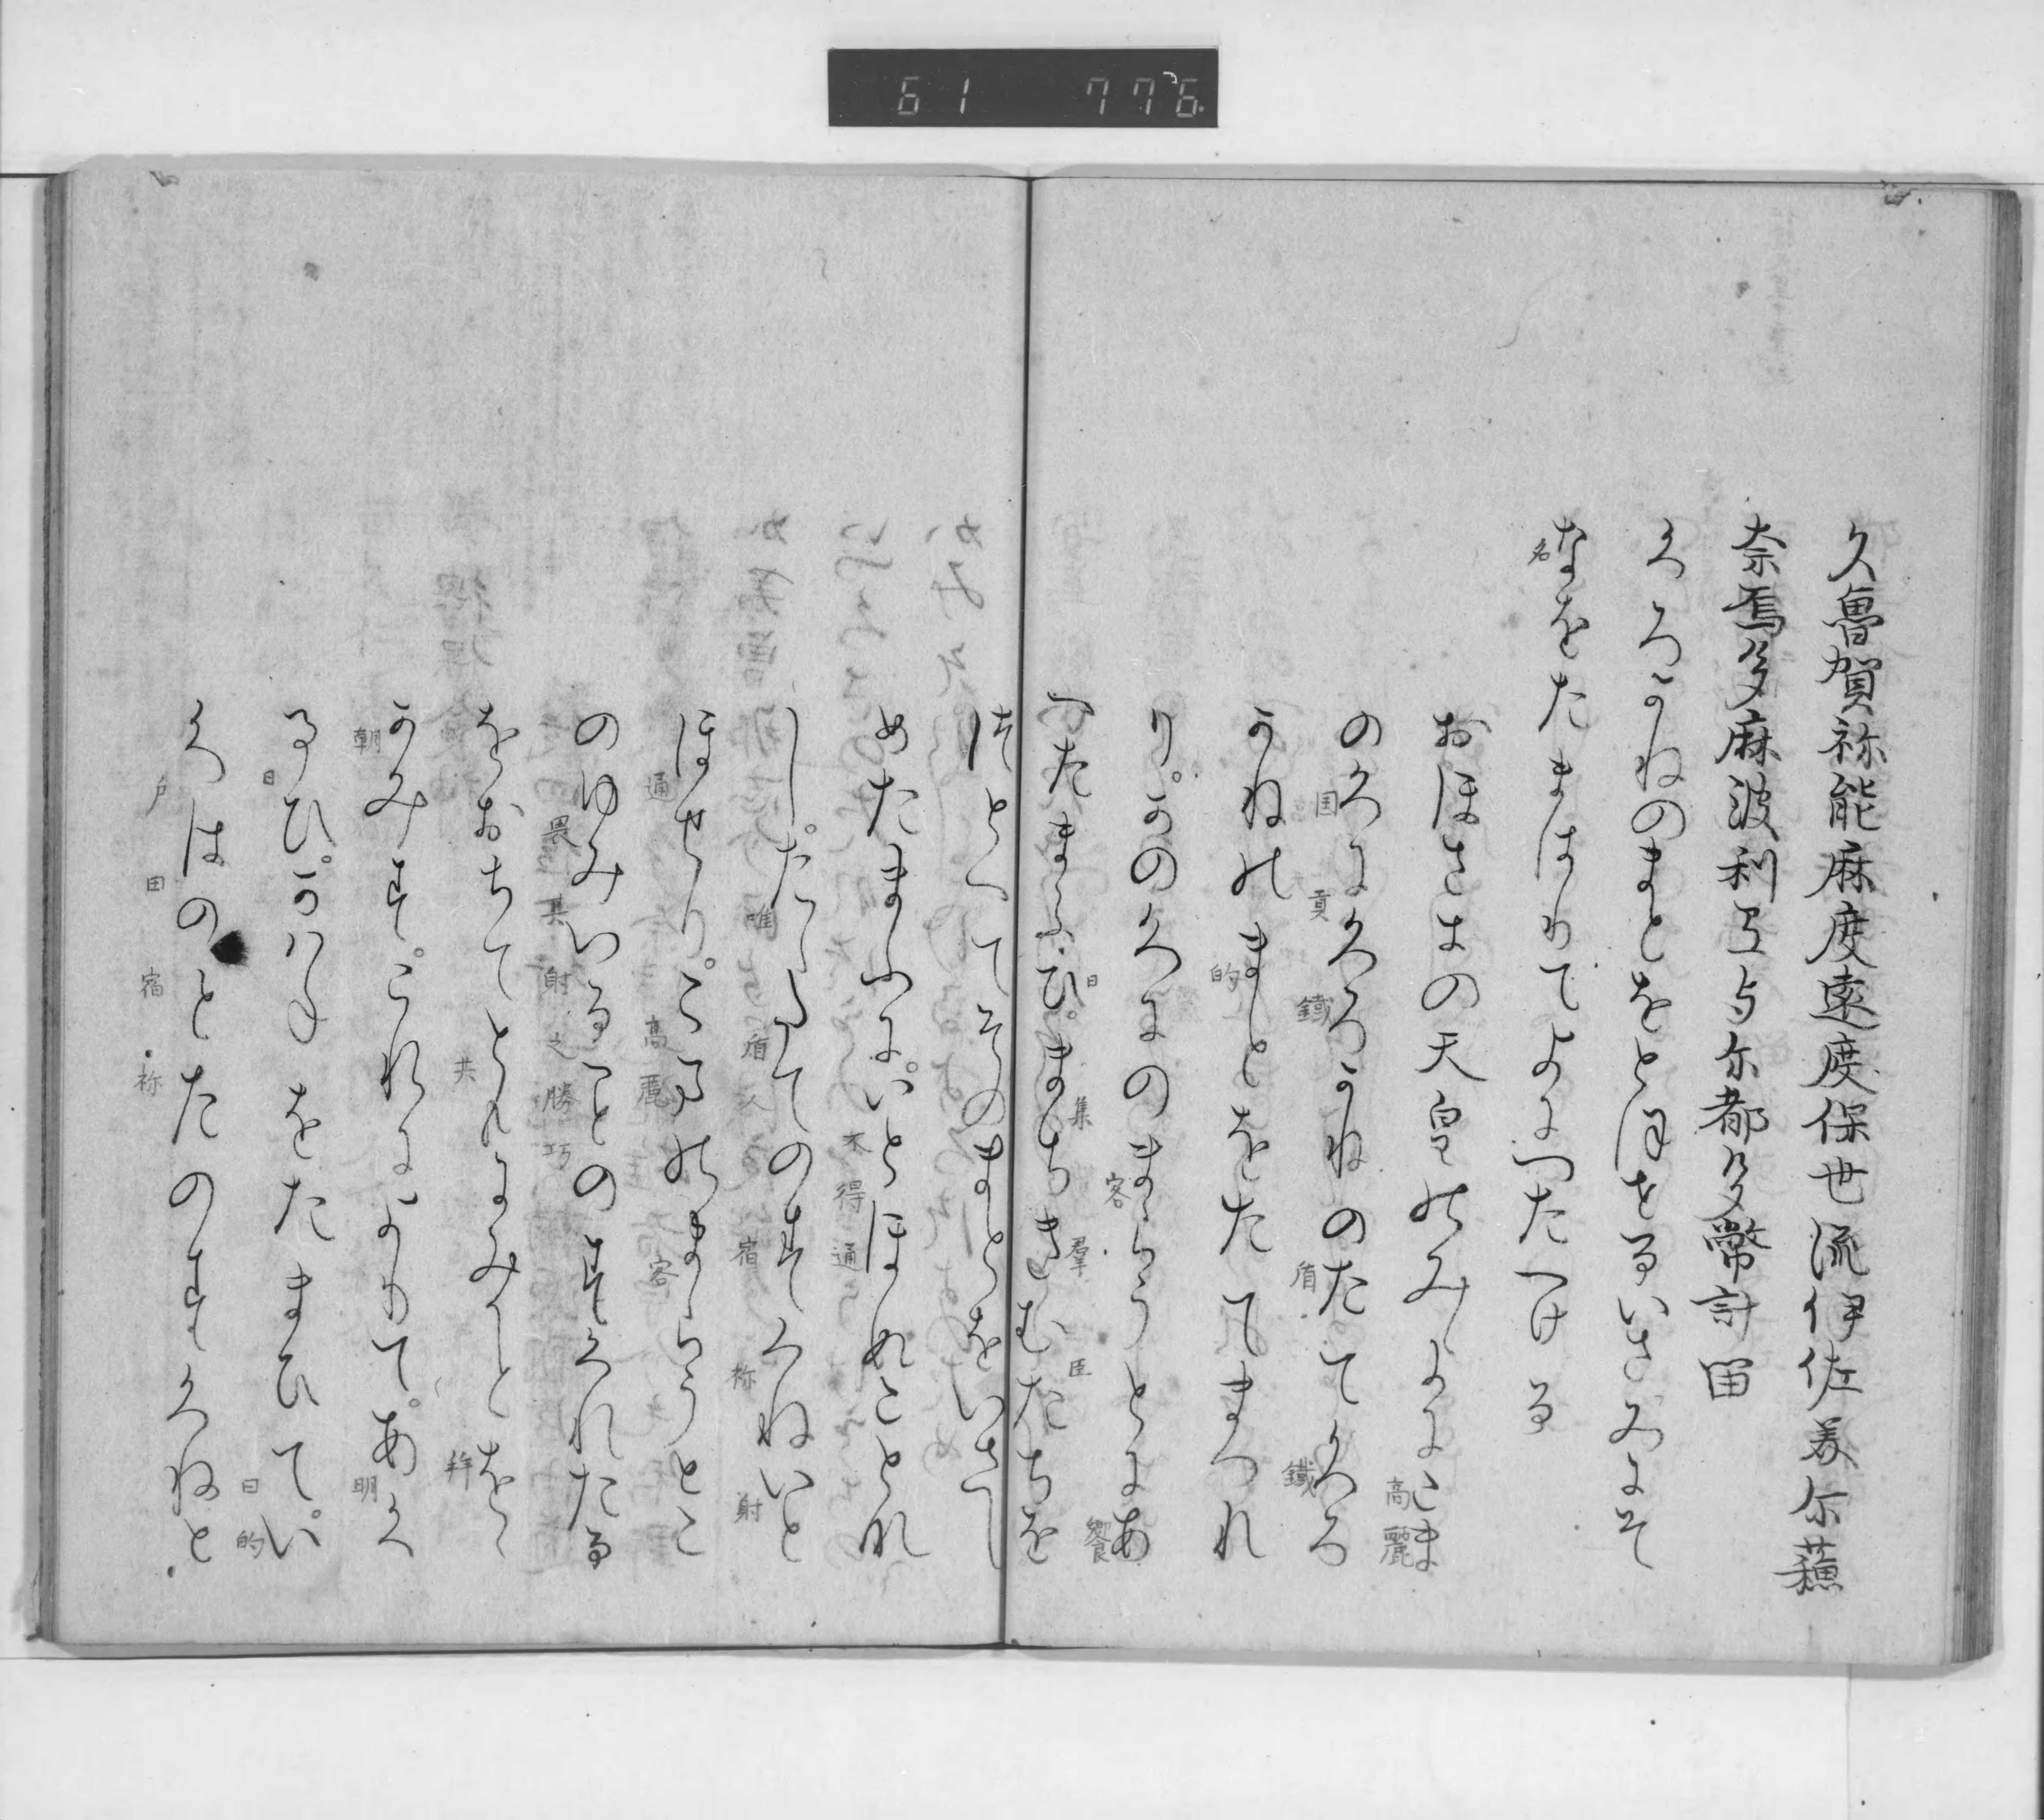 61 776
久魯賀祢能麻度遠度保世流伊佐美尓蘓
奈焉多麻波利弖与尓都多弊計留
くろかねのまとをとほせるいさみにそ
なをたまはりてよにつたへける
名
おほささきの天皇のみよにこま
高麗
のくにくろかねのたてくろ
国 貢 鐵 盾 鐵
かねのまとをたてまつれ
的
り。このくにのまらうとにあ
客 饗
へたまふひ。まちきむたちを
日 集 羣臣
つとへてそのまとをいさし
めたまふに。いとほぬことれ
不得通
し。たゝたてのすくねいと
唯 盾人 宿祢 射
ほせり。こまのまらうとこ
通 高麗 客
のゆみいることのすくれたる
畏其射之勝巧
をおちてともにみつとをゝ
共
かみす。これによりて。あく
朝 明
るひ。かハねをたまひて。い
日 日 的
くはのとたのすくねと
戸田宿祢